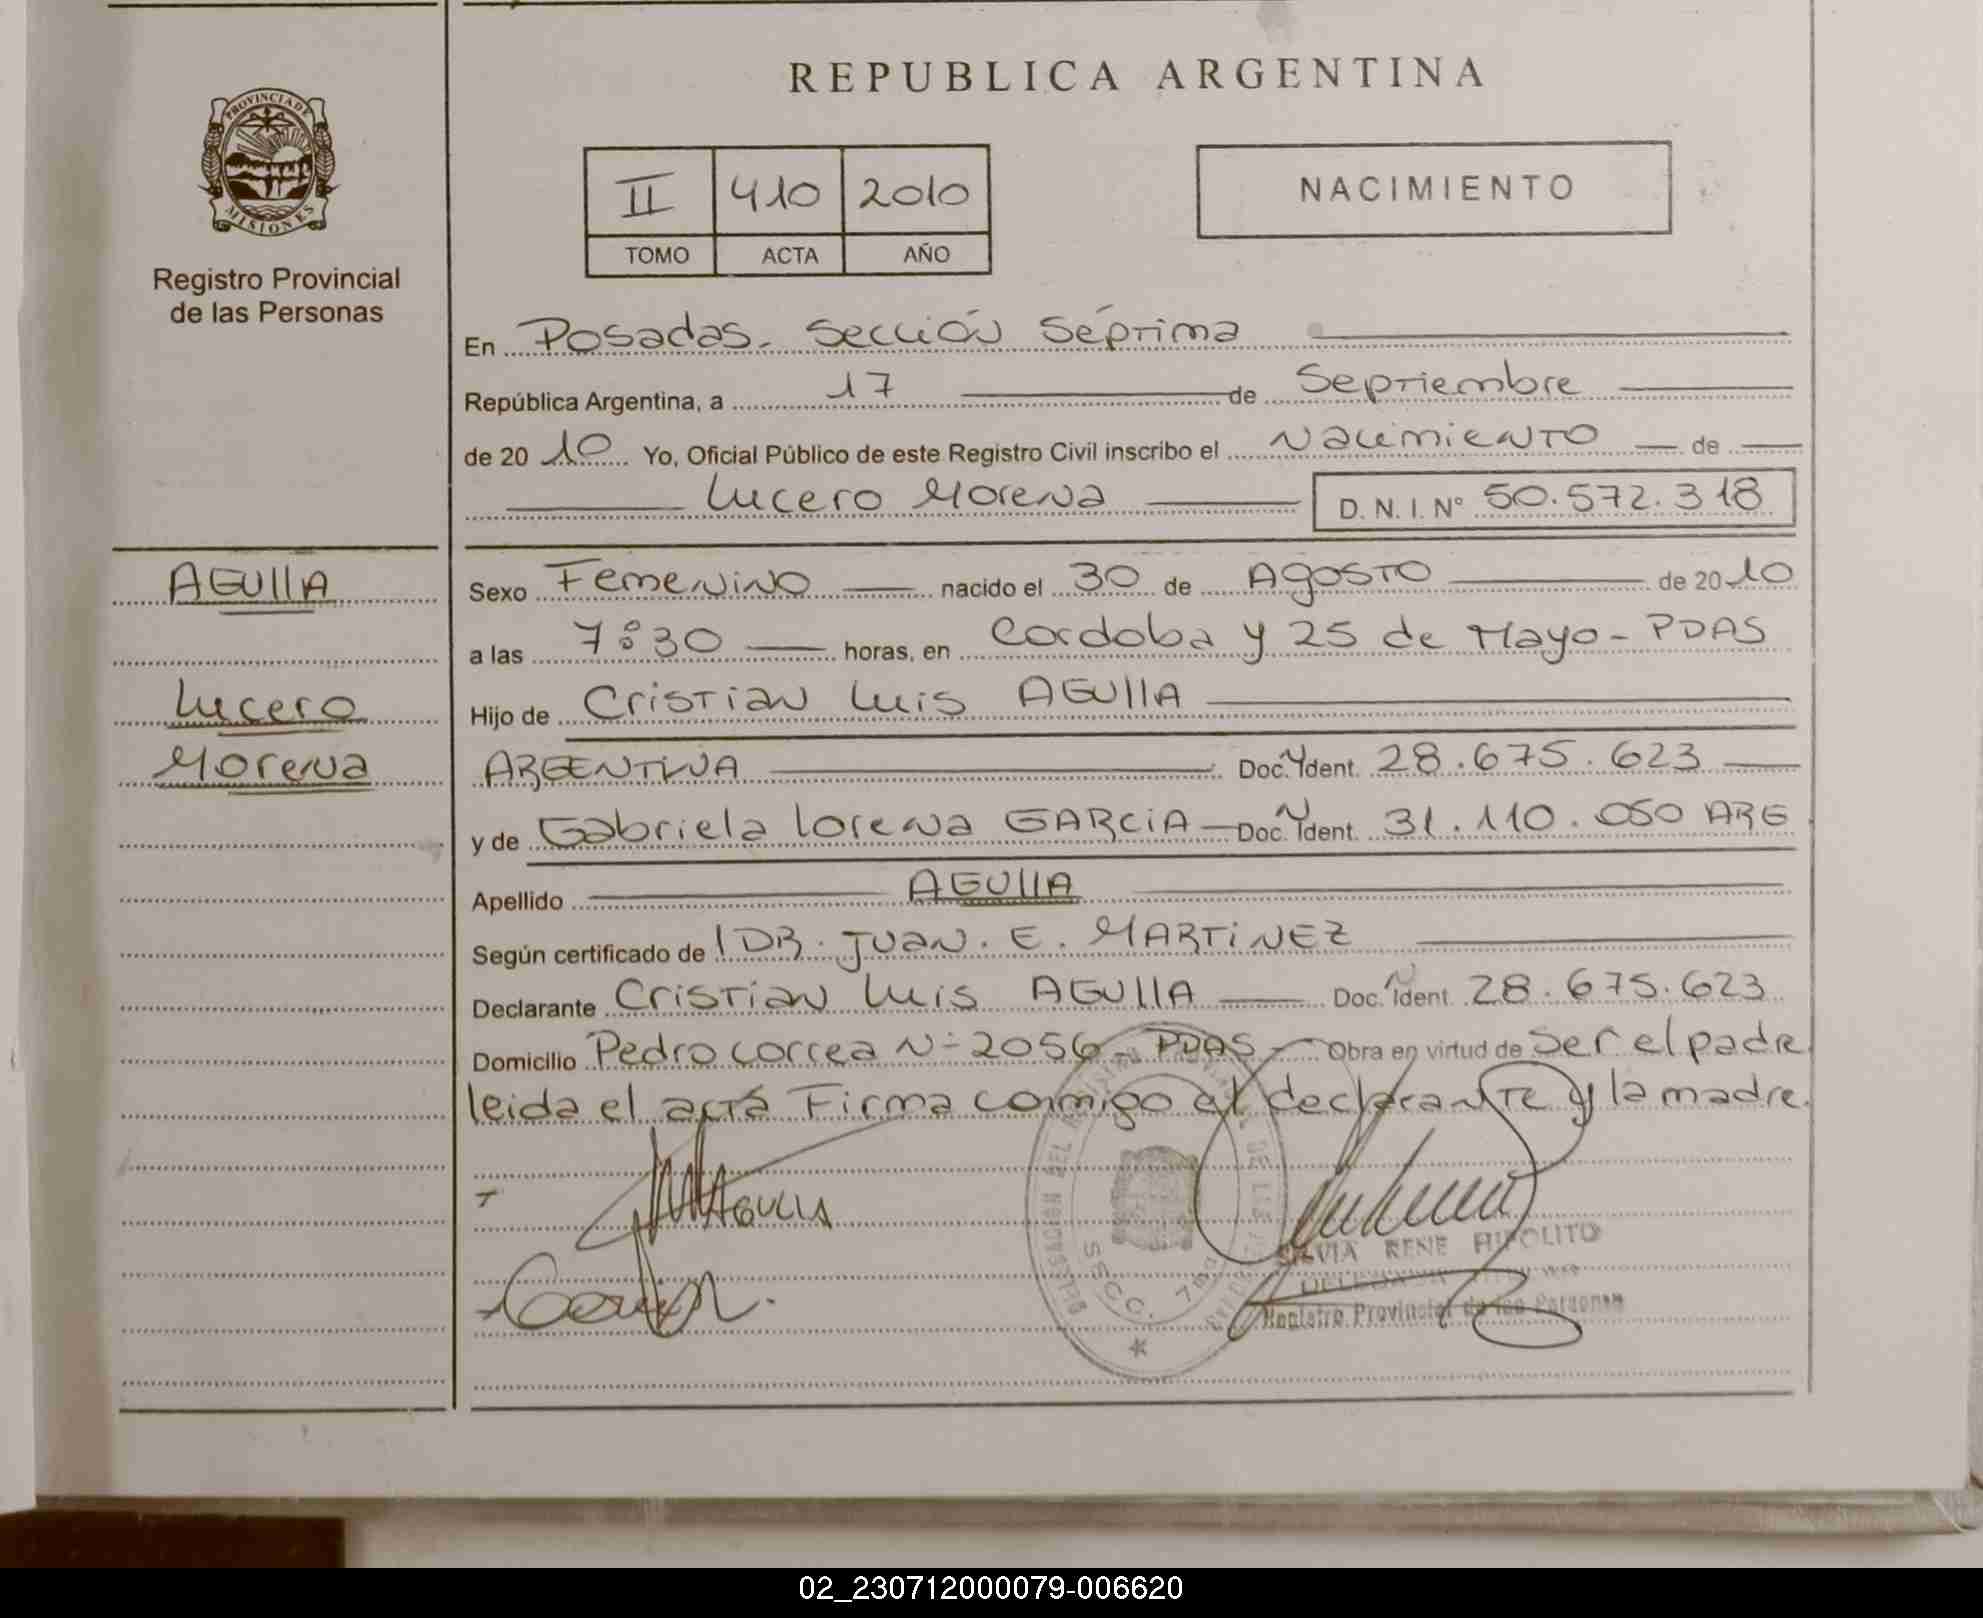 REPUBLICA ARGENTINA
PROVINCIA DE
MISIONES
Registro Provincial
de las Personas
II 410 2010
TOMO ACTA AÑO
NACIMIENTO
En Posadas. Sección Séptima
República Argentina, a 17 de Septiembre
de 2010 Yo, Oficial Público de este Registro Civil inscribo el Nacimiento de
Lucero Morena D. N. I. Nº 50.572.318
AGUllA
Lucero
Morena
Sexo Femenino nacido el 30 de Agosto de 2010
a las 7:30 horas, en Cordoba y 25 de Mayo - PDAS
Hijo de Cristian Luis AGUllA
ARGENTINA Doc. Ident. 28.675.623
y de Gabriela Lorena GARCIA Doc. Ident. 31.110.050 ARG
Apellido AGUllA
Según certificado de DR. JUAN. E. MARTINEZ
Declarante Cristian Luis AGUllA Doc. Ident. 28.675.623
Domicilio Pedro Correa N- 2056 - PDAS Obra en virtud de Ser el padre
leida el acta Firma conmigo el declarante y la madre.
AGUllA
SECC. 7ma
SILVIA RENE HIPOLITO
Registro Provincial de las Personas
02_230712000079-006620